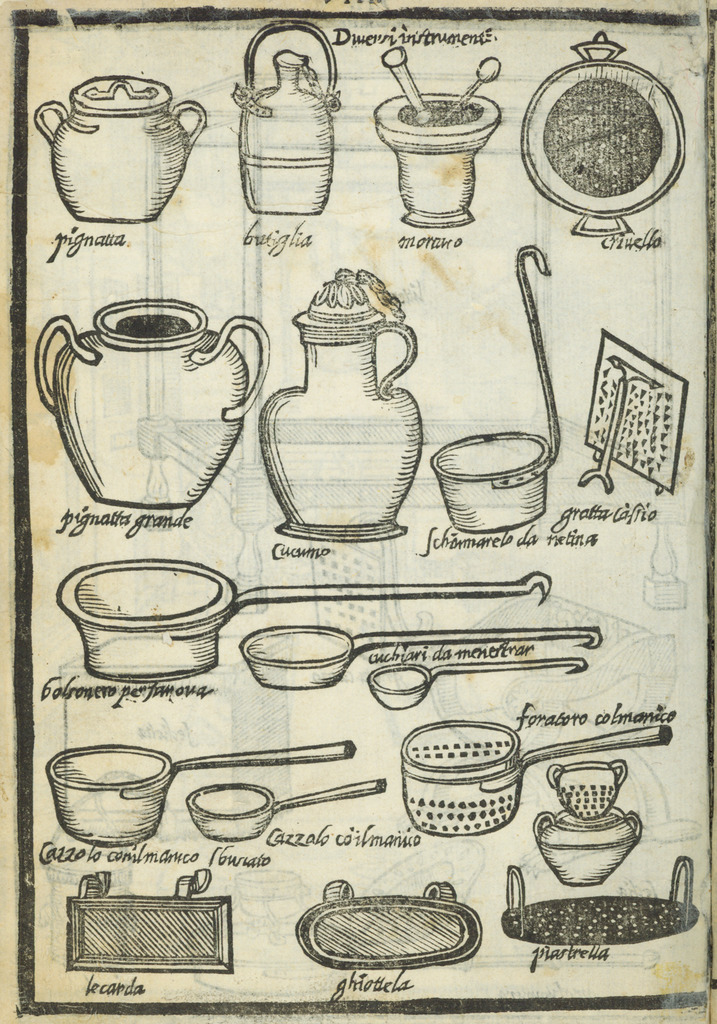 Diversi instrumenti
pignatta
butiglia
mortaio
crivello
pignatta grande
Cucumo
Schiumarelo da
gratta casio
bolsonero per far ova
cuchiari da menestrar
foratoro col manico
Cazzolo con il manico sbucato
Cazzalo cō il manico
lecarda
ghiottela
piastrella